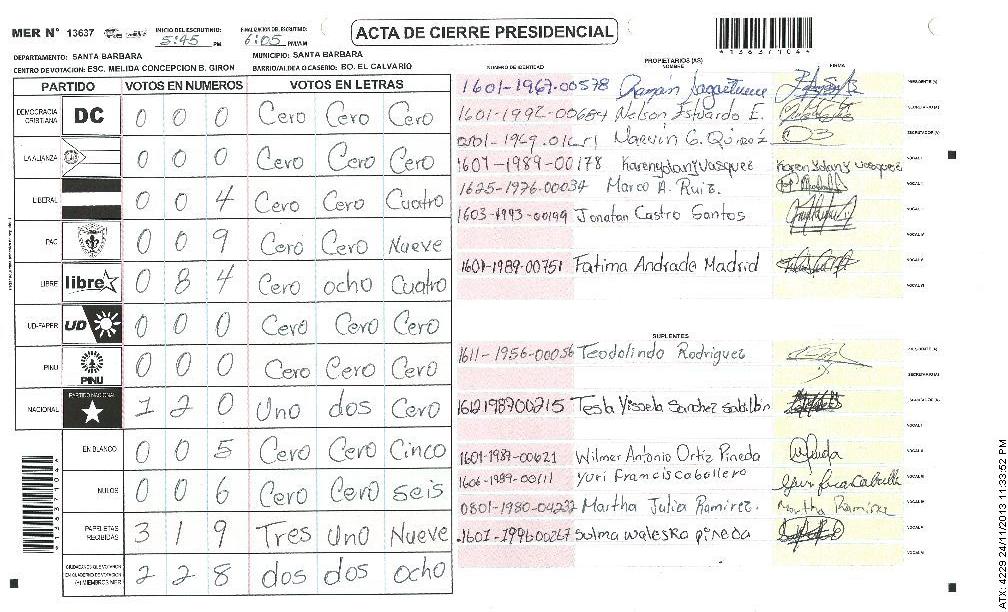 MER N° 13637 INICIO DEL ESCRUTINIO: 5:45 PM FINALIZACION DEL ESCRUTINIO: 6:05 PM/AM
ACTA DE CIERRE PRESIDENCIAL
DEPARTAMENTO: SANTA BARBARA MUNICIPIO: SANTA BARBARA
CENTRO DE VOTACION: ESC. MELIDA CONCEPCION B. GIRON BARRIO/ALDEA O CASERIO: BO. EL CALVARIO
PARTIDO VOTOS EN NUMEROS VOTOS EN LETRAS
DEMOCRACIA CRISTIANA DC 0 0 0 Cero Cero Cero
LA ALIANZA 0 0 0 Cero Cero Cero
LIBERAL 0 0 4 Cero Cero Cuatro
PAC 0 0 9 Cero Cero Nueve
LIBRE libre 0 8 4 Cero ocho Cuatro
UD-FAPER UD 0 0 0 Cero Cero Cero
PINU PINU 0 0 0 Cero Cero Cero
NACIONAL PARTIDO NACIONAL 1 2 0 Uno dos Cero
EN BLANCO 0 0 5 Cero Cero Cinco
NULOS 0 0 6 Cero Cero seis
PAPELETAS RECIBIDAS 3 1 9 Tres Uno Nueve
CIUDADANOS QUE VOTARON EN CUADERNO DE VOTACION (+) MIEMBROS MER 2 2 8 dos dos ocho
NUMERO DE IDENTIDAD PROPIETARIOS (AS) NOMBRE FIRMA
1601-1967-00578
1601-1992-00684 Nelson Estuardo E.
Marvin G.
1601-1989-00178 Kareny Vasquez
1625-1976-00034 Marco A. Ruiz.
1603-1993-00199 Jonatan Castro Santos
1601-1989-00751 Fatima Andrade Madrid
SUPLENTES
1611-1956-00056 Teodolindo Rodriguez
1612198700215 Tesla Yissela Sanchez
1601-1987-00621 Wilmer Antonio Ortiz Pineda
1606-1989-00111 Yuri Francis Caballero
0801-1980-04232 Martha Julia Ramirez. Martha Ramirez
1601-199600267 Sulma waleska pineda
ATX: 4229 24/11/2013 11:33:52 PM